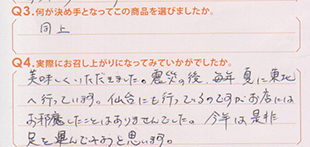 Q3.何が決め手となってこの商品を選びましたか。
同上
Q4.実際にお召し上がりになってみていかがでしたか。
美味しくいただきました。震災の後、毎年夏に東北
へ行っています。仙台にも行っているのですがお店には
お邪魔したことはありませんでした。今年は是非
足を運んでみようと思います。